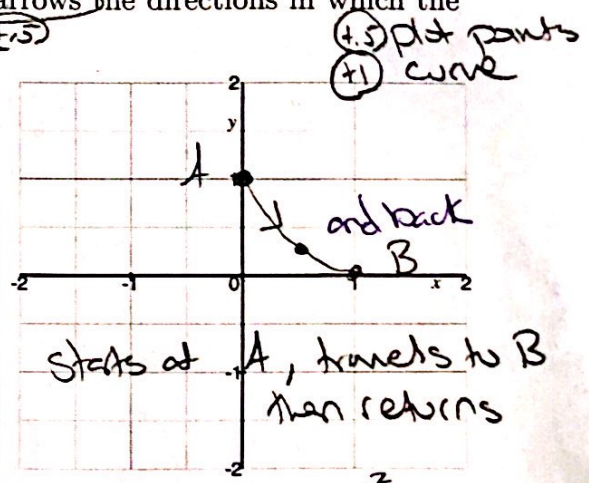 arrows the directions in which the
+.5
+.5 plot points
+1 curve
2
y
A
and back
B
-2 -1 0 1 x 2
starts at A, travels to B
-1
then returns
-2
2